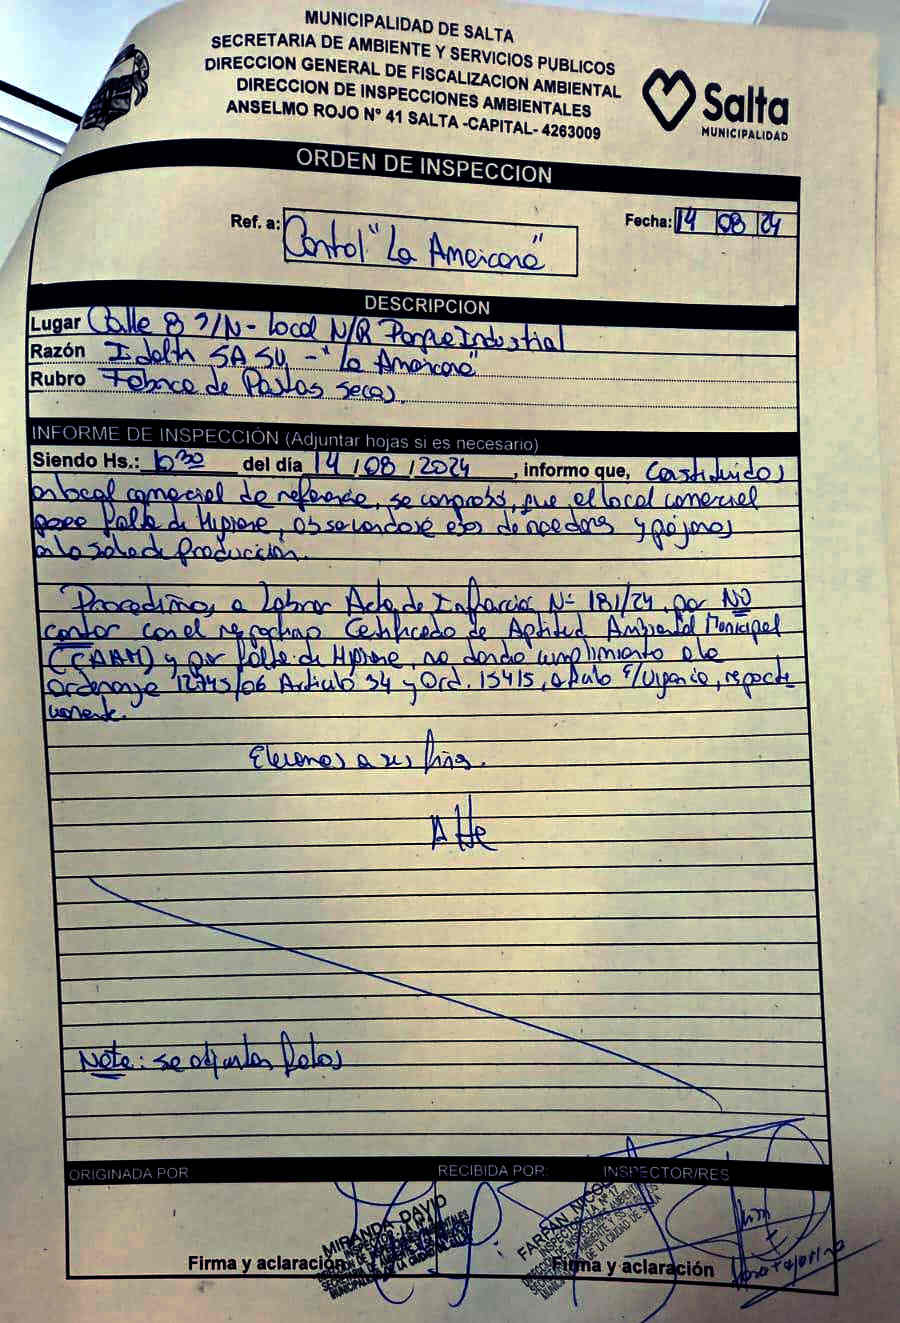 MUNICIPALIDAD DE SALTA
SECRETARIA DE AMBIENTE Y SERVICIOS PUBLICOS
DIRECCION GENERAL DE FISCALIZACION AMBIENTAL
DIRECCION DE INSPECCIONES AMBIENTALES
ANSELMO ROJO N° 41 SALTA -CAPITAL- 4263009
Salta
MUNICIPALIDAD
ORDEN DE INSPECCION
Ref. a: Control "La Americana"
Fecha: 14 08 24
DESCRIPCION
Lugar Calle 8 S/N - Local N/R Parque Industrial
Razón SASU - "La Americana"
Rubro Fabrica de Pastas secas.
INFORME DE INSPECCIÓN (Adjuntar hojas si es necesario)
Siendo Hs.: del día 14/08/2024, informo que, Constituidos
en local comercial de referencia, se comprobó, que el local comercial
posee falta de Higiene, observandose eses de roedores y pájaros
en la sala de Producción.
Procedimos a Labrar Acta de Infracción N° 181/24, por NO
contar con el respectivo Certificado de Aptitud Ambiental Municipal
(CAAM) y por falta de Higiene, no dando cumplimiento a la
Ordenanza 12745/06 Articulo 34 y Ord. 15415, respecti
vamente.
Elevamos a sus fines.
Atte
Nota: se adjuntan fotos
ORIGINADA POR
RECIBIDA POR:
INSPECTOR/RES
MIRANDA DAVID
FARFAN NICOL
Firma y aclaración
Firma y aclaración